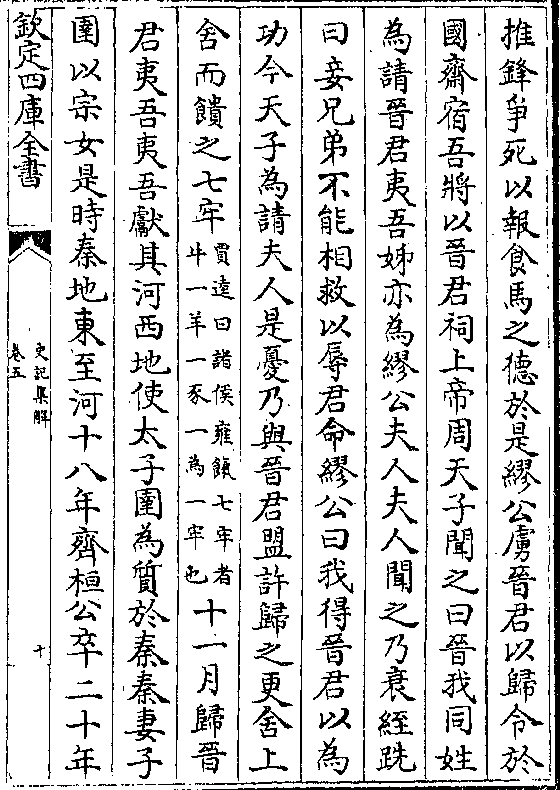 推鋒爭死以報食馬之德於是繆公虜晉君以歸令於
國齋宿吾將以晉君祠上帝周天子聞之曰晉我同姓
為請晉君夷吾姊亦為繆公夫人夫人聞之乃衰絰跣
曰妾兄弟不能相救以辱君命繆公曰我得晉君以為
功今天子為請夫人是憂乃與晉君盟許歸之更舍上
舍而饋之七牢賈逵曰諸侯雍餼七牢者牛一羊一豕一為一牢也十一月歸晉
君夷吾夷吾獻其河西地使太子圉為質於秦秦妻子
圉以宗女是時秦地東至河十八年齊桓公卒二十年
欽定四庫全書
史記集解
卷五
十